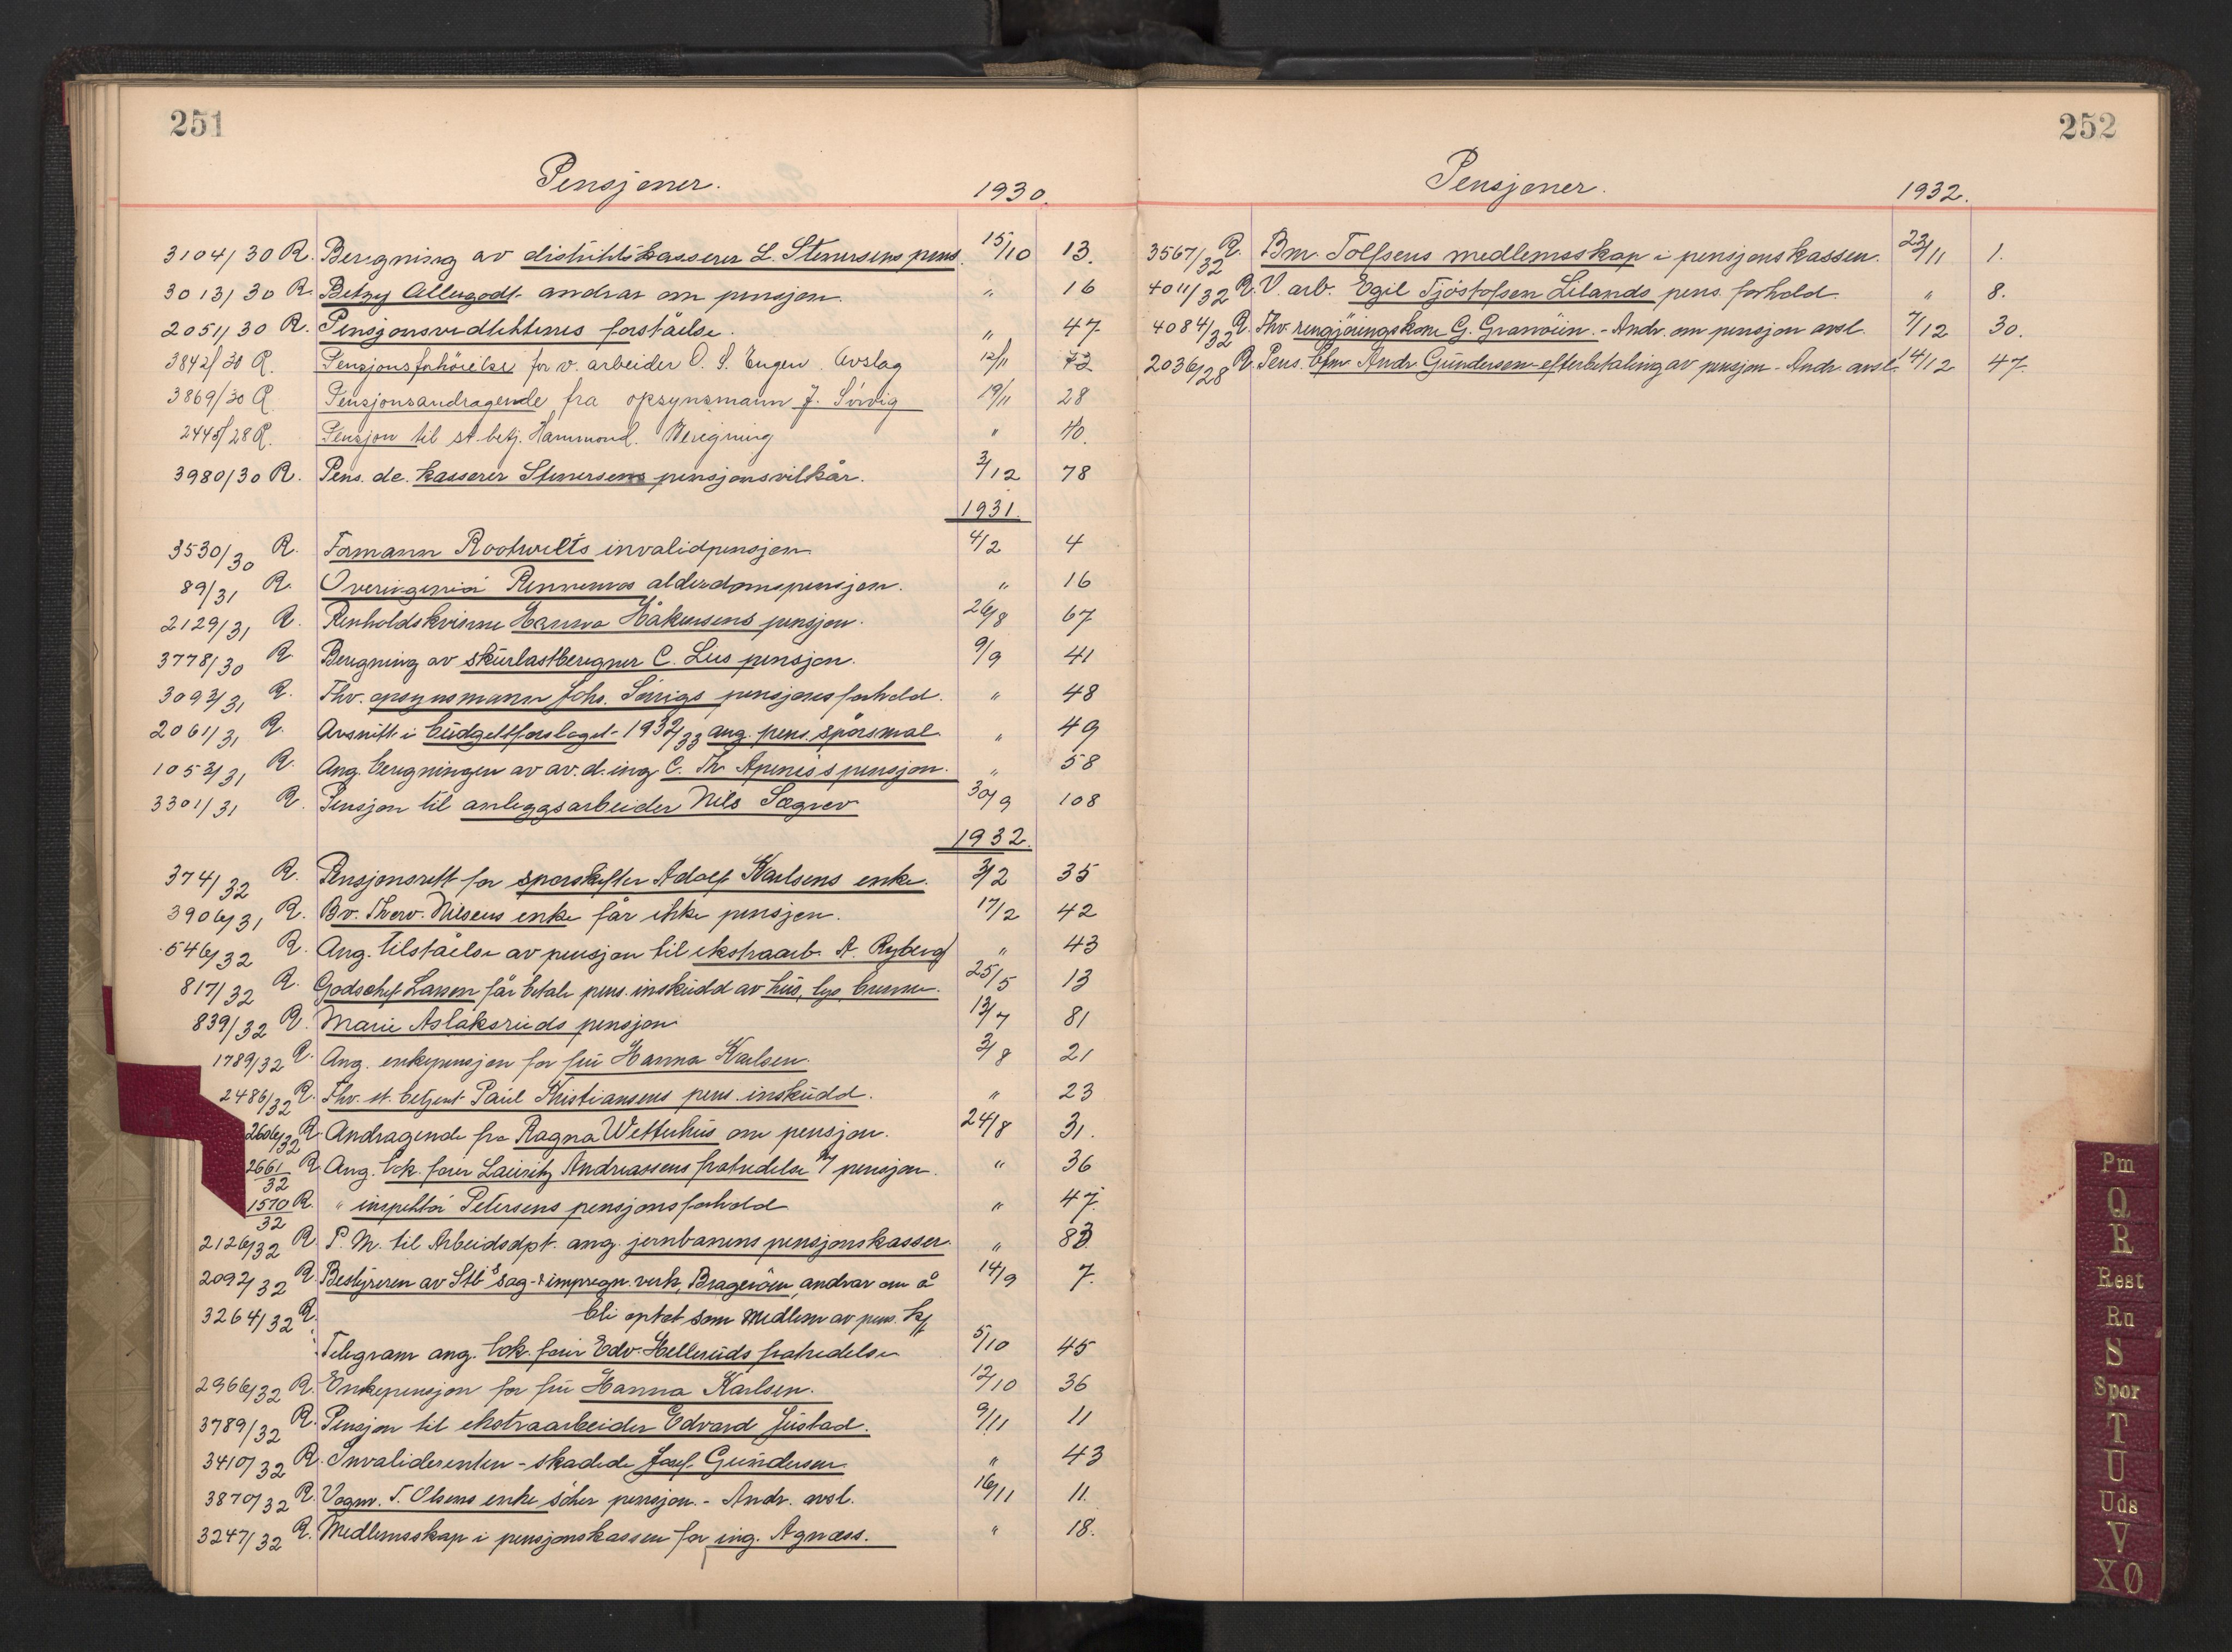 251
Pensjoner. 1930.
3104/30 R. Beregning av distriktskasserer L. Stenersens pens. 15/10 13.
3013/30 R. Betzy Allergodt andrar om pensjon. " 16
2051/30 R. Pensjonsvedtektenes forståelse. " 47
3842/30 R. Pensjonsforhöielse for v. arbeider O. S. Engen. Avslag 12/11 72
3869/30 R. Pensjonsandragende fra opsynsmann J. Sörvig 19/11 28
2445/28 R. Pensjon til st. betj. Hammond. Beregning " 40.
3980/30 R. Pens. de. kasserer Stenersens pensjonsvilkår. 3/12 78
1931.
3530/30 R. Formann Rootwelts invalidpensjon 4/2 4
89/31 R. Overingeniör alderdomspensjon. " 16
2129/31 R. Renholdskvinne Hanna Håkensens pensjon. 26/8 67
3778/30 R. Beregning av skurlastberegner C. Lies pensjon. 9/9 41
3093/31 R. Fhv. opsynsmann Johs. Sörvigs pensjonsforhold. " 48
2061/31 R. Avsnitt i budgettforslaget 1932/33 ang. pens. spörsmal. " 49
1053/31 R. Ang. beregningen av av.d. ing. C. Th. Apenes's pensjon. " 58
3301/31 R. Pensjon til anleggsarbeider Nils Sægrov 30/9 108
1932.
374/32 R. Pensjonsrett for sporskifter Adolf Karlsens enke. 3/2 35
3906/31 R. Bv. Therv. Nilsens enke får ikke pensjon. 17/2 42
546/32 R. Ang. tilståelse av pensjon til ekstraarb. A. Ryberg " 43
817/32 R. Godschef Larsen får betale pens. inskudd av hus, lys, brensel. 25/5 13
839/32 R. Marie Aslaksruds pensjon 13/7 81
1789/32 R. Ang. enkepensjon for fru Hanna Karlsen. 3/8 21
2486/32 R. Fhv. st. betjent Paul Kristiansens pens. inskudd. " 23
2606/32 R. Andragende fra Ragna Wetterhus om pensjon. 24/8 31.
2661/32 R. Ang. lok. förer Lauritz Andreassens fratredelse m/ pensjon. " 36
1570/32 R. " inspektör Petersens pensjonsforhold " 47.
2126/32 R. P. M. til Arbeidsdpt. ang. jernbanens pensjonskasser. " 83
2092/32 R. Bestyreren av Stb's sag- & impregn. verk, Brageröen, andrar om å 14/9 7.
3264/32 R. bli optat som medlem av pens. k.
Telegram ang. lok. förer Edv. Hellerüds fratredelse 5/10 45
2966/32 R. Enkepensjon for fru Hanna Karlsen. 12/10 36
3789/32 R. Pensjon til ekstraarbeider Edvard Justad. 9/11 11
3410/32 R. Invaliderenten - skadede Josef Gundersen " 43
3870/32 R. Vognv. T. Olsens enke söker pensjon. - Andr. avsl. 16/11 11.
3247/32 R. Medlemsskap i pensjonskassen for ing. Agnæss. " 18.
252
Pensjoner. 1932.
3567/32 R. Bm. Tolfsens medlemsskap i pensjonskassen. 23/11 1.
4011/32 R. V. arb. Egil Tjöstofsen Lilands pens. forhold. " 8.
4084/32 R. Fhv. rengjöringskone G. Granöien. - Andr. om pensjon avsl. 7/12 30.
2036/28 R. Pens. bfm. Andr. Gundersen - efterbetaling av pensjon - Andr. avsl. 14/12 47.
Pm
Q
R
Rest
Ru
S
Spor
T
U
Uds
V
XØ